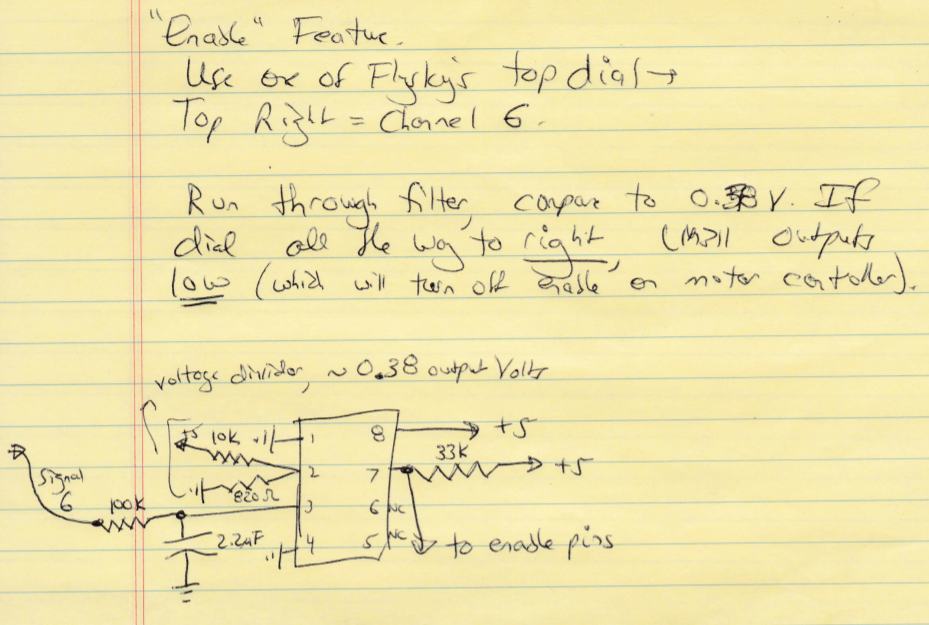 "Enable" Feature.
Use one of Flysky's top dial →
Top Right = Channel 6.
Run through filter, compare to 0.38 V. If
dial all the way to right, LM311 outputs
low (which will turn off enable on motor controller).
voltage divider, ~ 0.38 output Volts
+5 10K 1 8 +5
33K
2 7 +5
Signal
6
820Ω
100K 3 6 NC
2.2uF 4 5 NC to enable pins